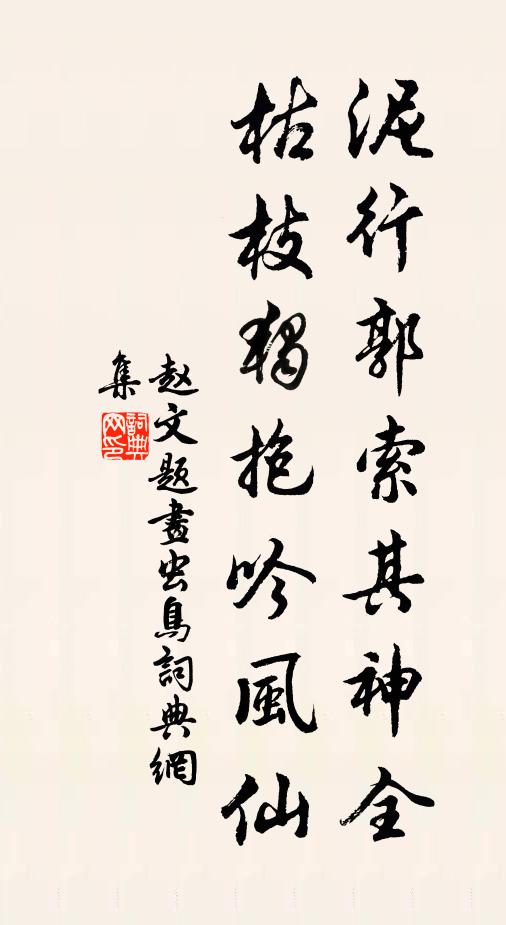 泥行郭索其神全
枯枝独抱吟風仙
赵文题畫虫鳥詞典網
集
詞典
网印